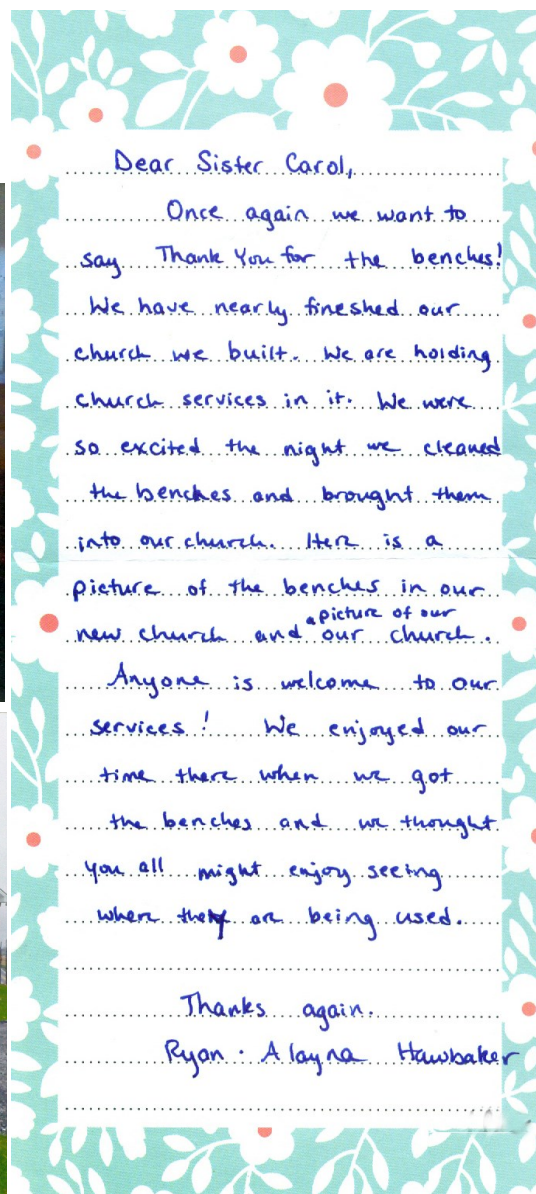 Dear Sister Carol,
Once again we want to
say Thank You for the benches!
We have nearly fineshed our
church we built. We are holding
church services in it. We were
so excited the night we cleaned
the benches and brought them
into our church. Here is a
picture of the benches in our
a picture of our
new church and our church.
Anyone is welcome to our
services! We enjoyed our
time there when we got
the benches and we thought
you all might enjoy seeing
where they are being used.
Thanks again.
Ryan · Alayna Hawbaker